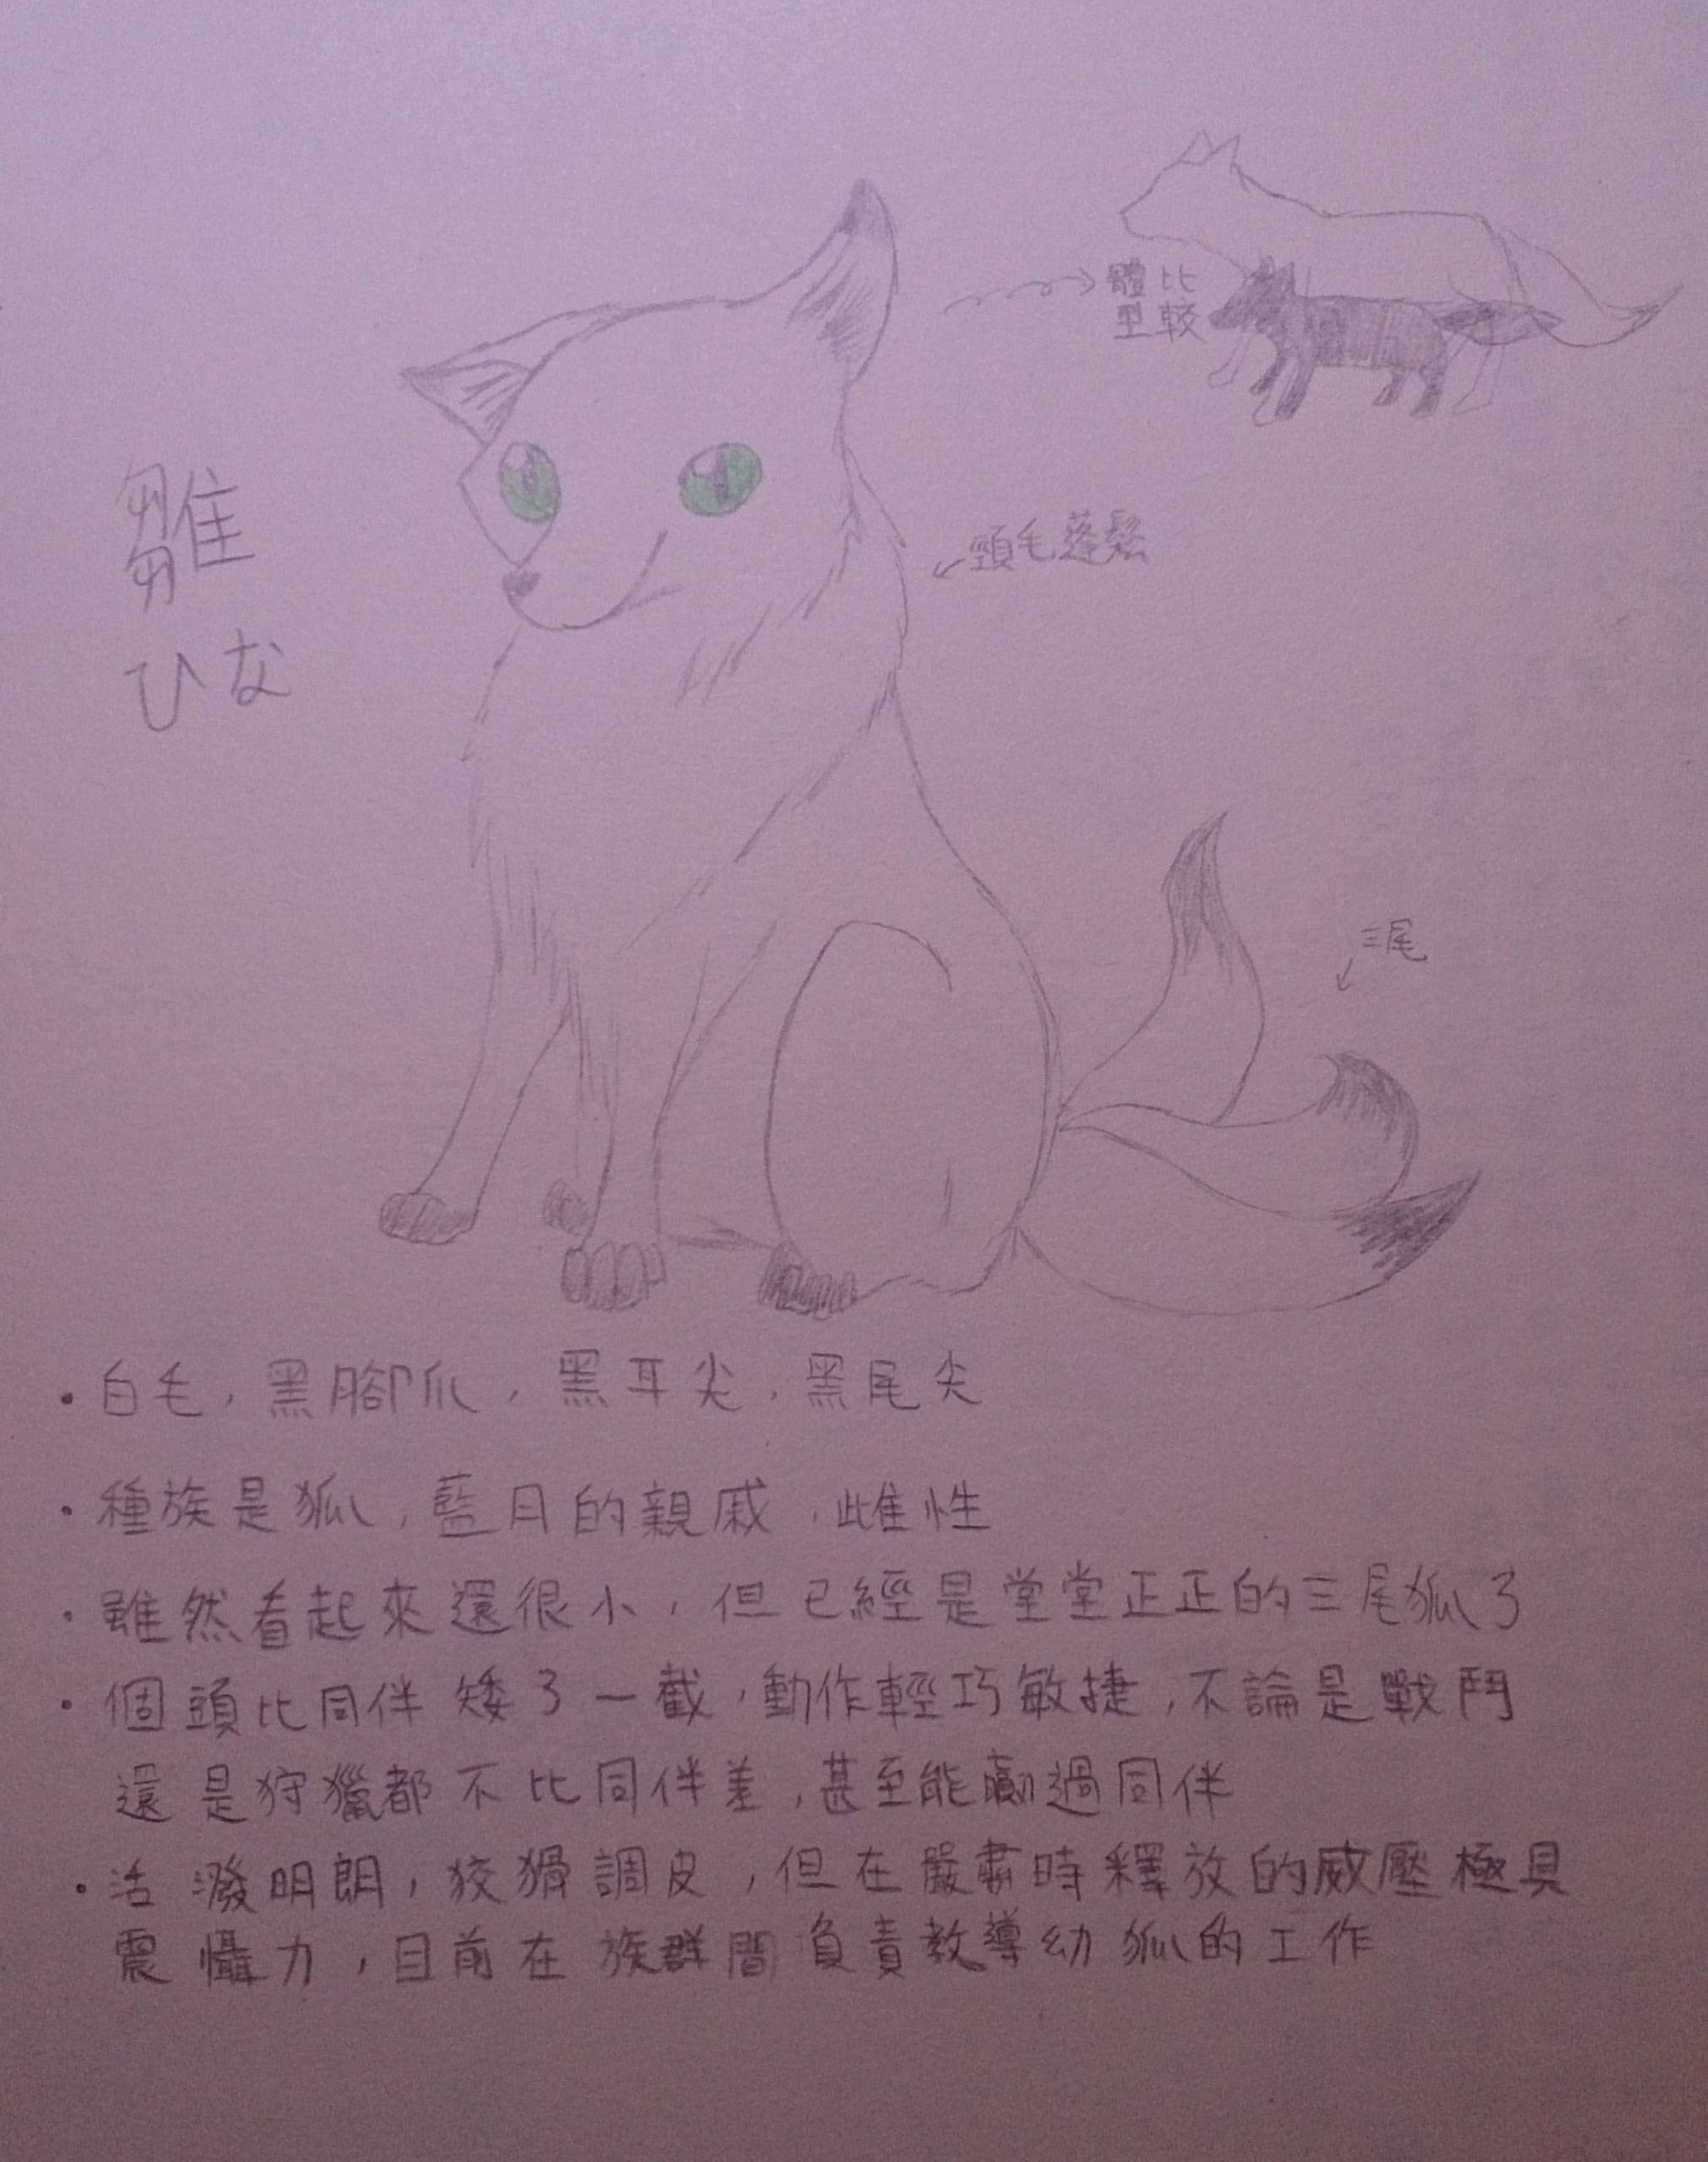 體比
型較
雛
ひな
頸毛蓬鬆
三尾
・白毛，黑腳爪，黑耳尖，黑尾尖
・種族是狐，藍月的親戚，雌性
・雖然看起來還很小，但已經是堂堂正正的三尾狐了
・個頭比同伴矮了一截，動作輕巧敏捷，不論是戰鬥
還是狩獵都不比同伴差，甚至能贏過同伴
・活潑明朗，狡猾調皮，但在嚴肅時釋放的威壓極具
震懾力，目前在族群間負責教導幼狐的工作